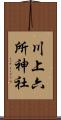 川上六
所神社